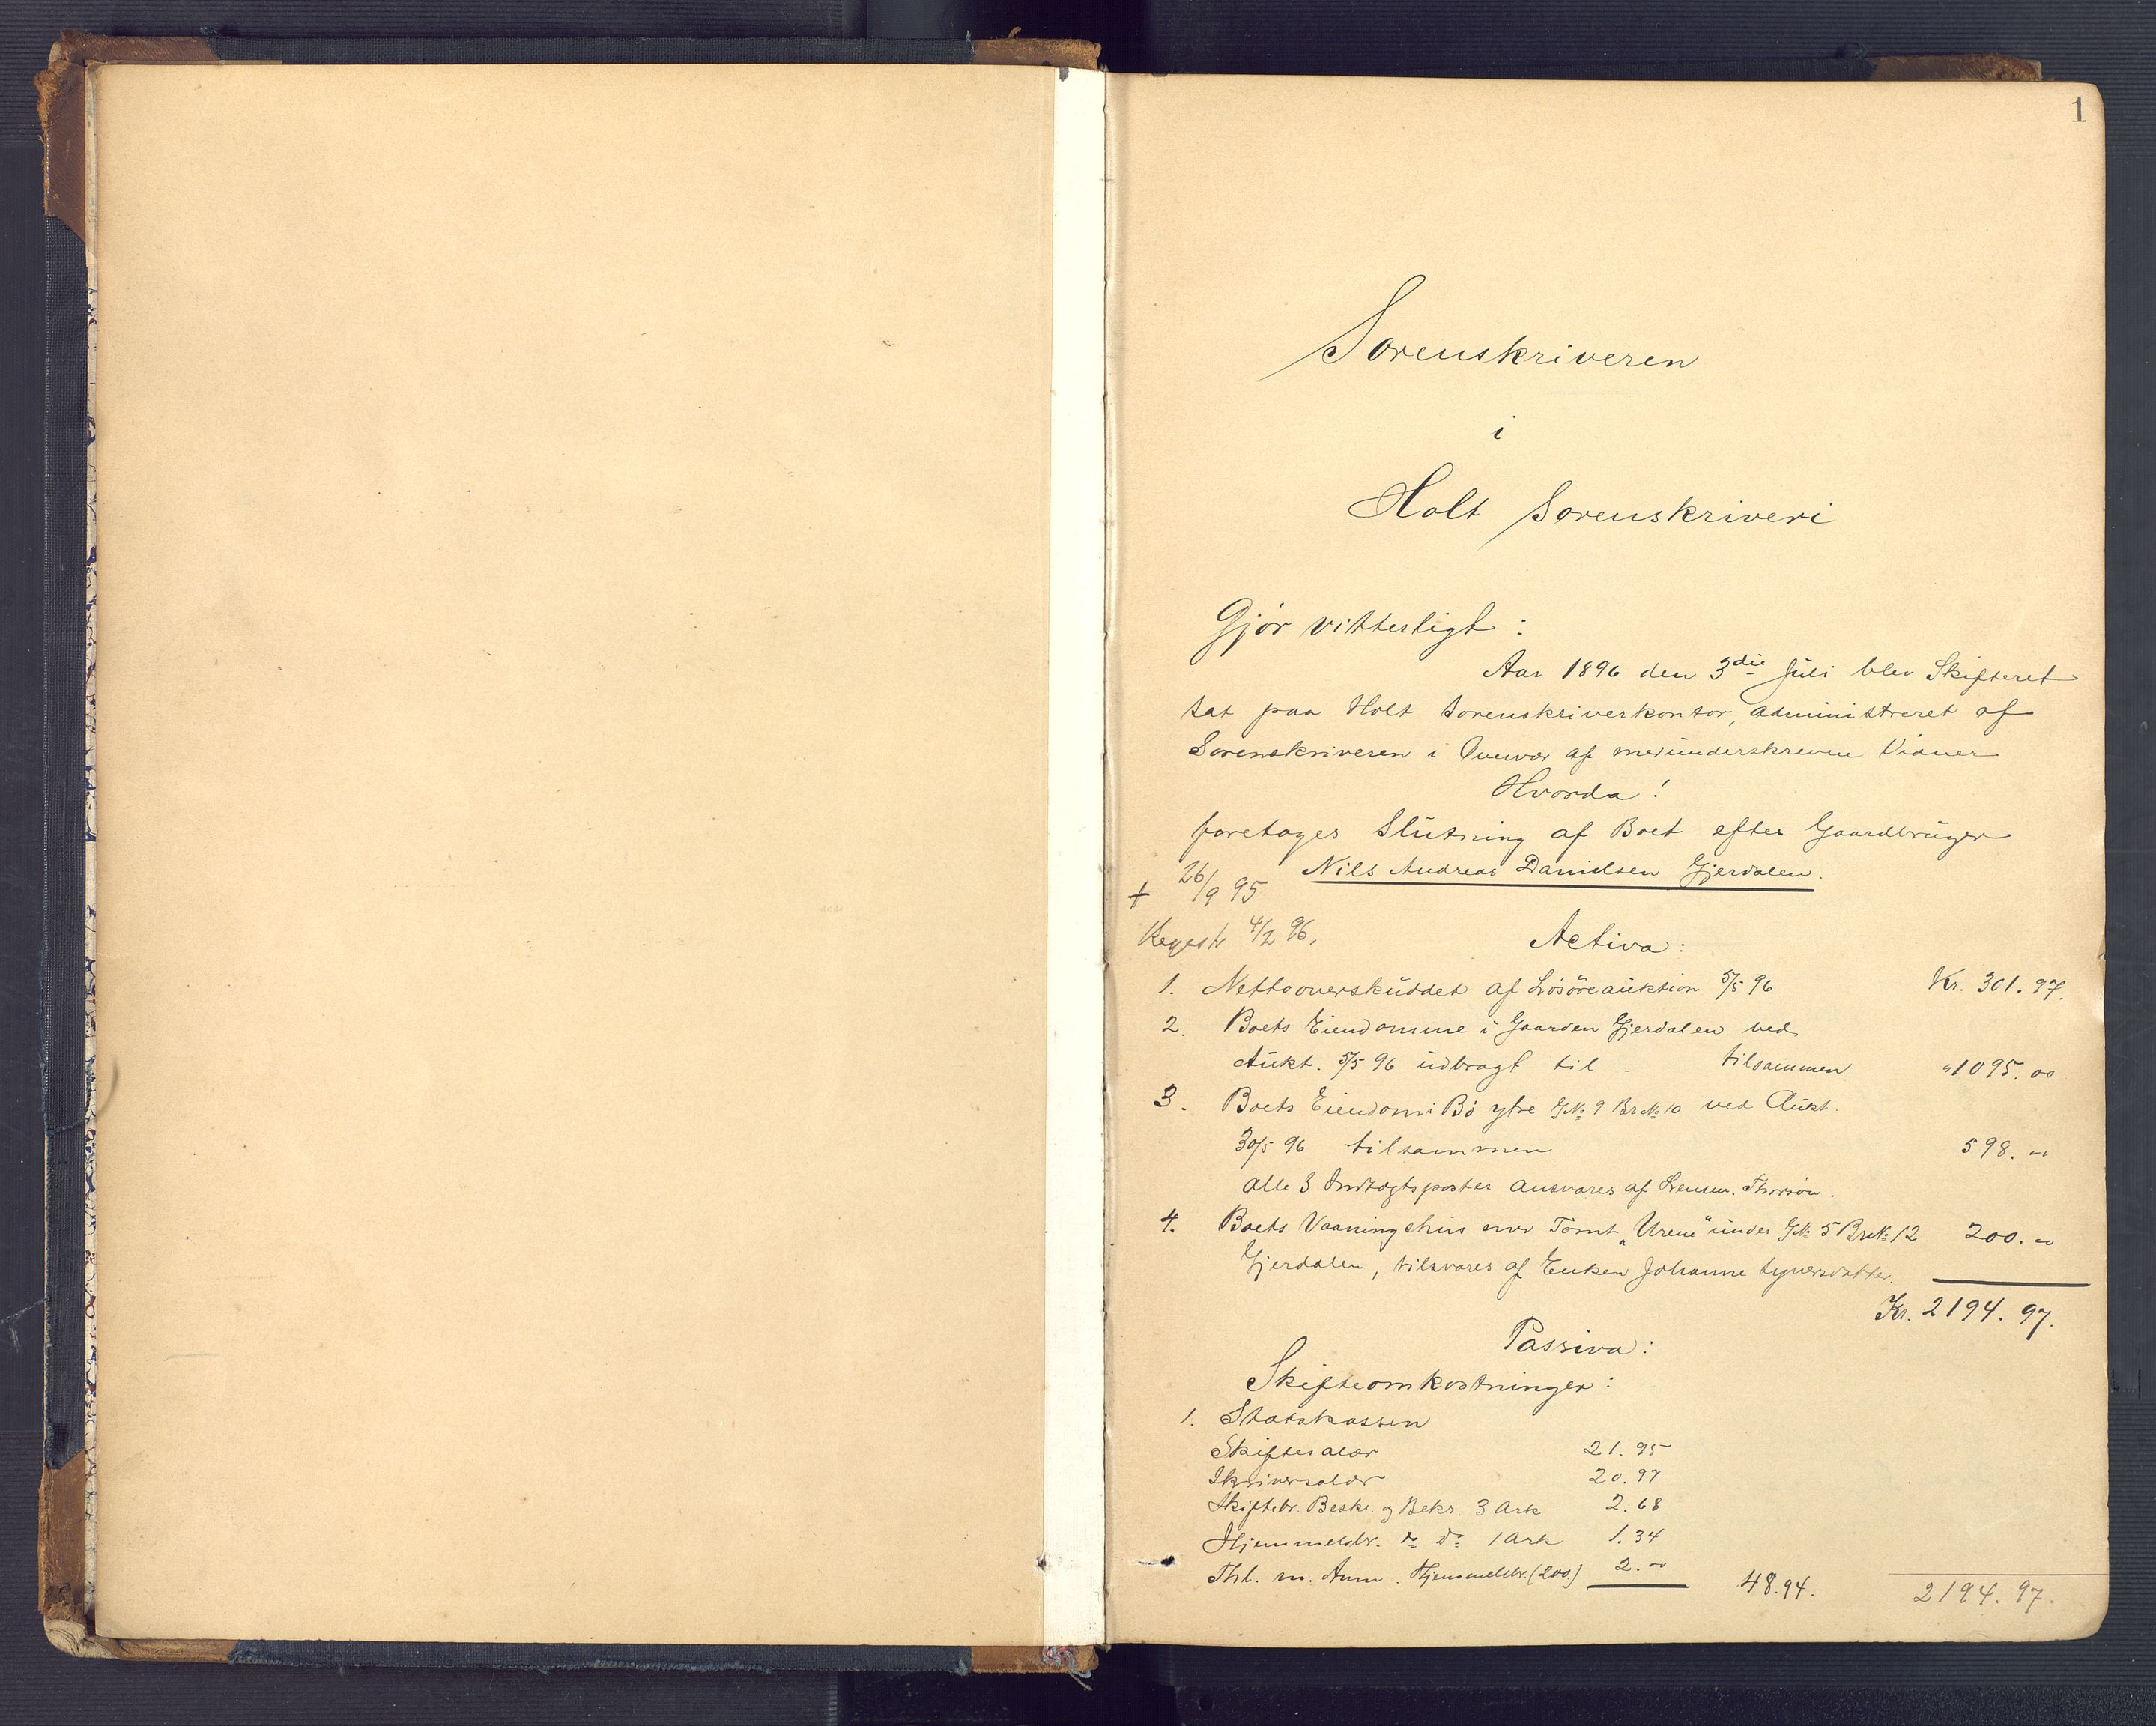 1
Sorenskriveren
i
Holt Sorenskriveri
Gjør vitterligt:
Aar 1896 den 3die Juli blev Skifteret
sat paa Holt Sorenskriverkontor, administreret af
Sorenskriveren i Overvær af medunderskrevne Vidner
Hvorda!
foretoges Slutning af Boet efter Gaardbruger
+ 26/9 95 Nils Andreas Danielsen Gjerdalen.
Regestr 4/2 96. Activa:
1. Nettooverskuddet af Løsøreauktion 5/5 96 Kr. 301.97.
2. Boets Eiendomme i Gaarden Gjerdalen ved
Aukt. 5/5 96 udbragt til tilsammen " 1095.00
3. Boets Eiendom i Bø ytre G№ 9 Br№ 10 ved Aukt.
30/5 96 tilsammen 598. "
Alle 3 Indtægtsposter ansvares af Lensm. Thorsøn.
4. Boets Vaaningshus med Tomt "Urene" under G№ 5 Br№ 12 200. "
Gjerdalen, tilsvares af Enken Johanne
Kr. 2194.97.
Passiva:
Skifteomkostninger:
1. Statskassen
Skiftesalær 21.95
Skriversalær 20.97
Skiftebr. Beskr. og Bekr. 3 Ark 2.68
Hjemmelsbr. do do 1 Ark 1.34
Thl. m. Anm. Hjemmelsbr. (200.) 2. " 48.94. 2194.97.